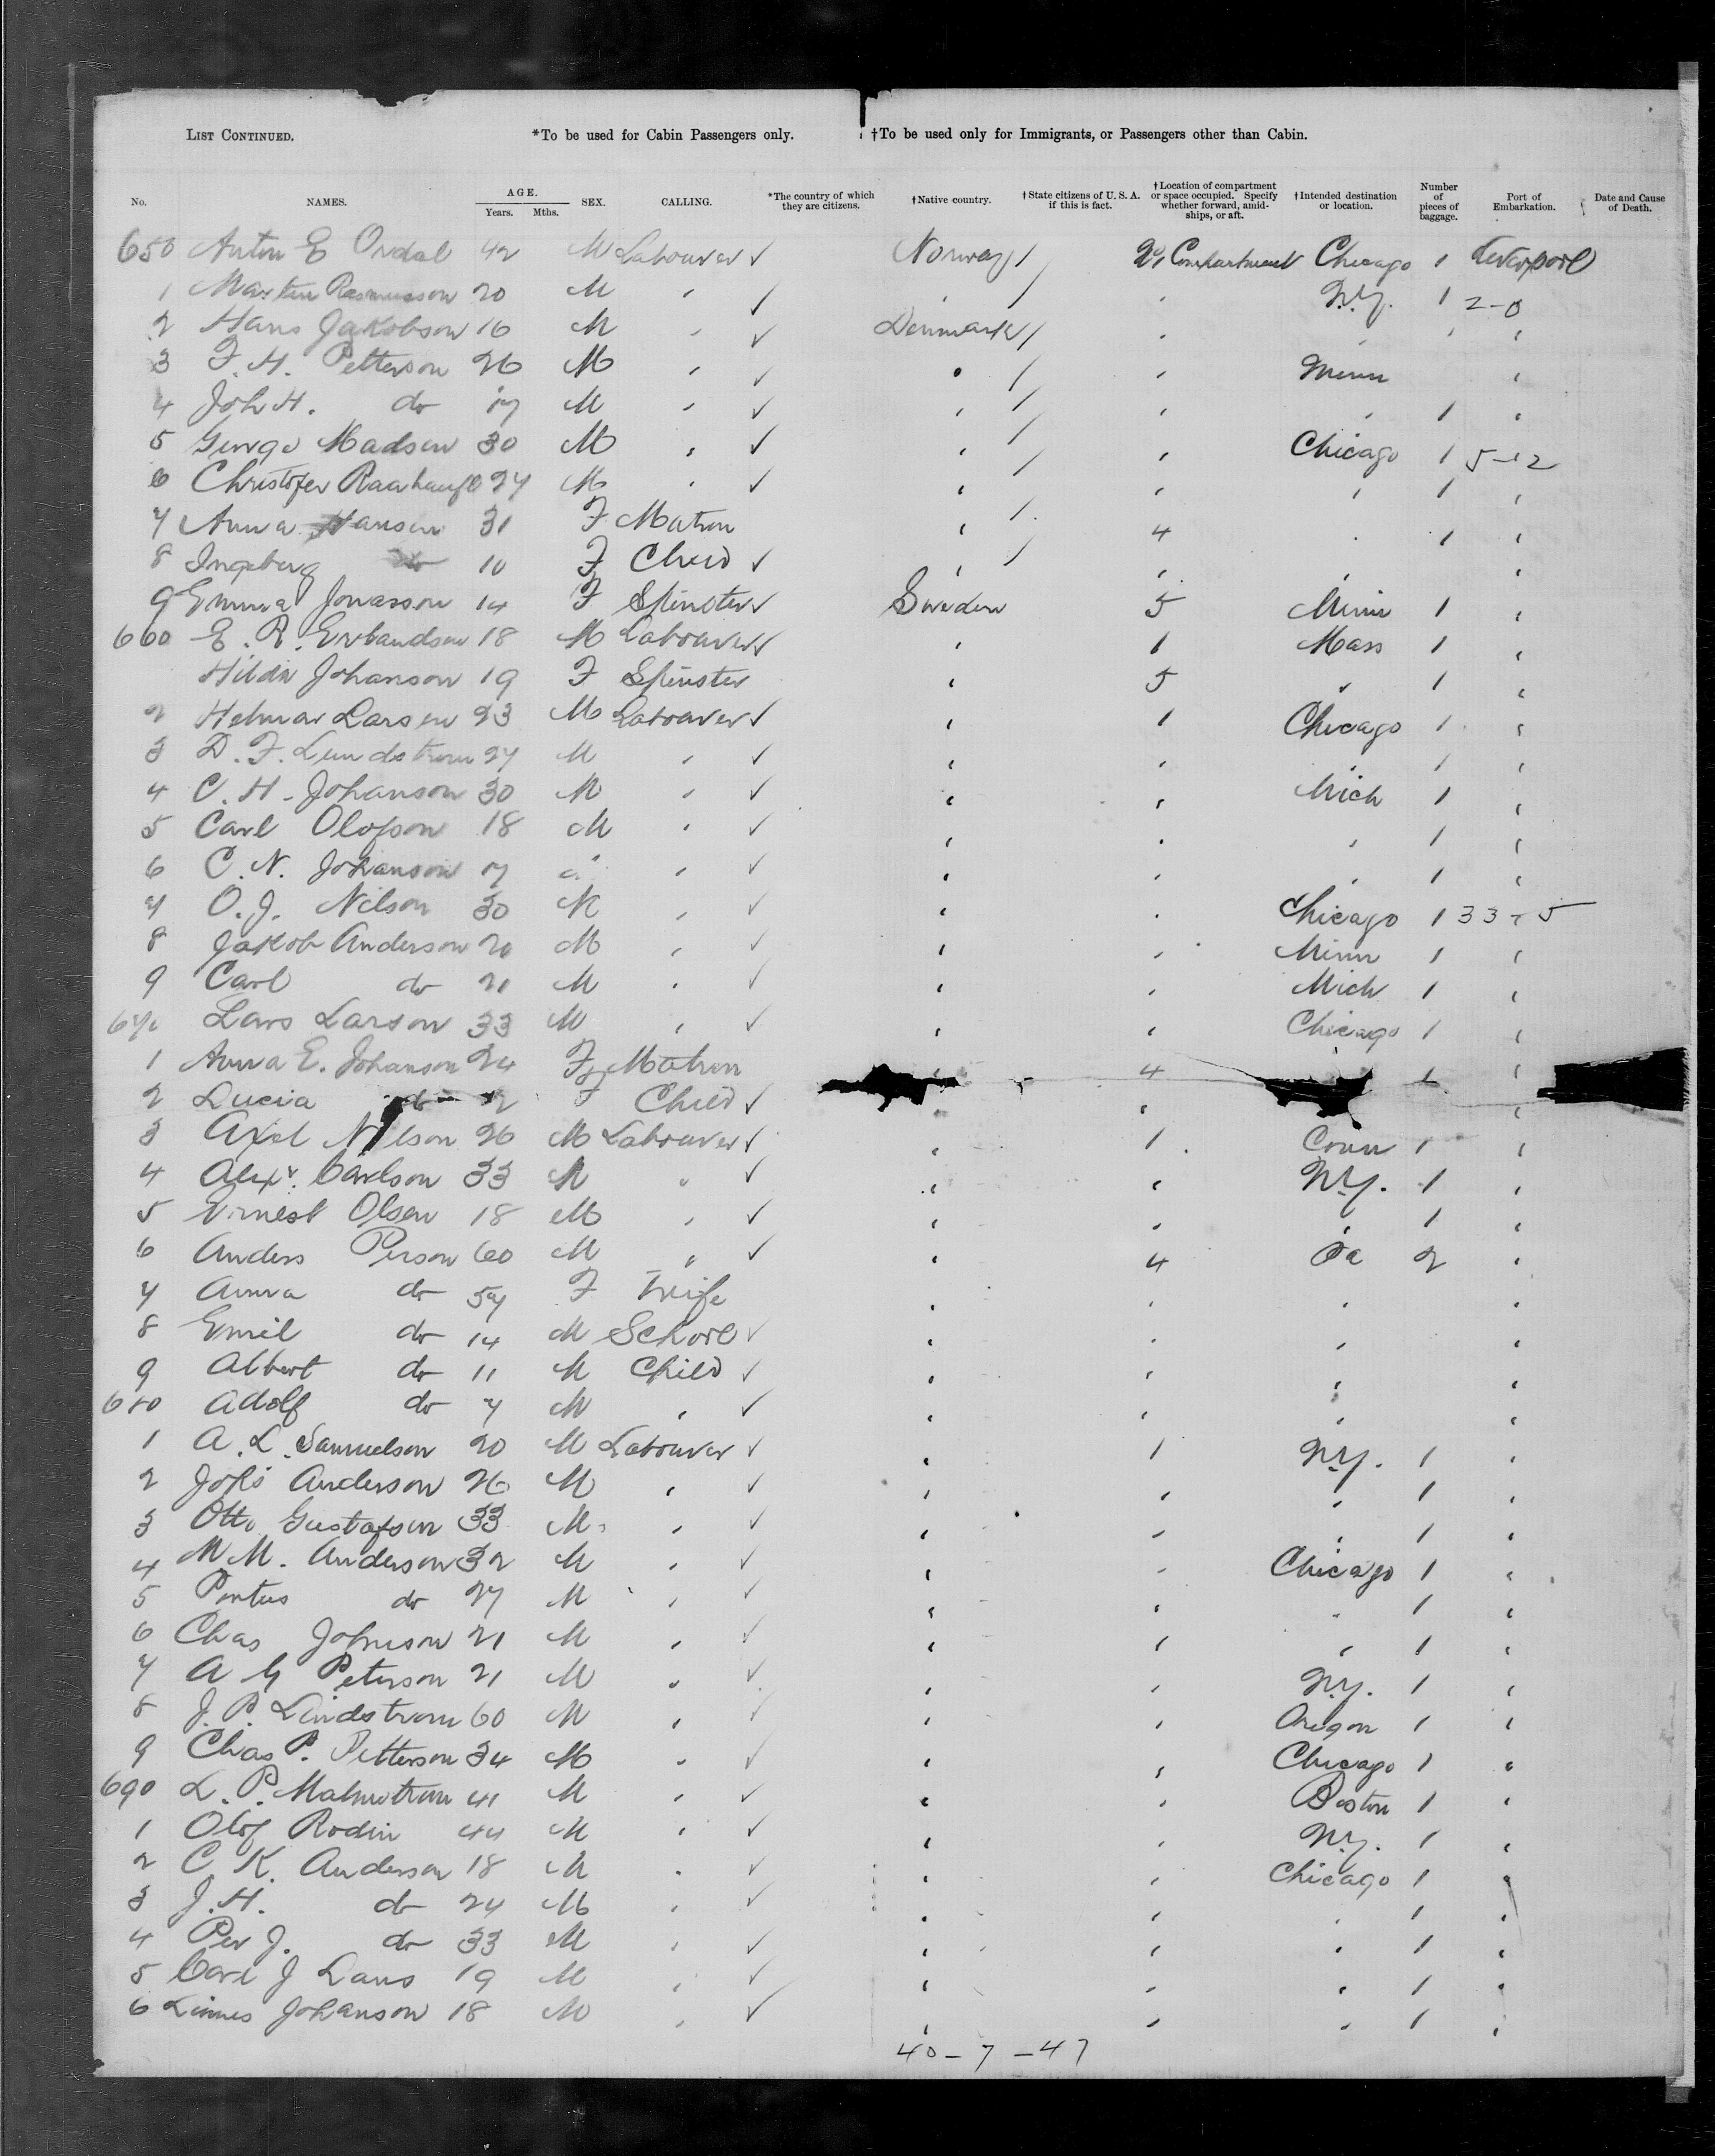 LIST CONTINUED. *To be used for Cabin Passengers only. †To be used only for Immigrants, or Passengers other than Cabin.
No. NAMES. AGE. Years. Mths. SEX. CALLING. *The country of which they are citizens. †Native country. †State citizens of U. S. A. if this is fact. †Location of compartment or space occupied. Specify whether forward, amidships, or aft. †Intended destination or location. Number of pieces of baggage. Port of Embarkation. Date and Cause of Death.
650 Anton E Ordal 42 M Labourer ✓ Norway / Compartment Chicago 1 Liverpool
1 Martin Rasmusson 20 M " ✓ " / " N.Y. 1 2-0
2 Hans Jakobson 16 M " ✓ Denmark / " " " "
3 F. H. Petterson 26 M " ✓ " / " Minn "
4 Joh H. do 17 M " ✓ " / " " 1 "
5 George Madsen 30 M " ✓ " / " Chicago 1 5-12
6 Christofer 27 M " ✓ " / " " 1 "
7 Anna Hansen 31 F Matron " / 4 " 1 "
8 Ingeborg do 10 F Child ✓ " / " " "
9 Emma Jonasson 14 F Spinster ✓ Sweden 5 Minn 1 "
660 E. R. 18 M Labourer ✓ " 1 Mass 1 "
Hilda Johanson 19 F Spinster " 5 " 1 "
2 Helmar Larsen 23 M Labourer ✓ " 1 Chicago 1 "
3 D. F. Lundstrom 27 M " ✓ " " " 1 "
4 C. H. Johanson 30 M " ✓ " " Mich 1 "
5 Carl Olofson 18 M " ✓ " " " 1 "
6 C. N. Johanson 17 " " ✓ " " " 1 "
7 O. J. Nilson 30 M " ✓ " " Chicago 1 33-5
8 Jakob Anderson 20 M " ✓ " " Minn 1 "
9 Carl do 21 M " ✓ " " Mich 1 "
670 Lars Larson 33 M " ✓ " " Chicago 1 "
1 Anna E. Johanson 24 F Matron " 4 1 "
2 Lucia do 2 F Child ✓ " " "
3 Axel Nilson 26 M Labourer ✓ " 1 Conn 1 "
4 Alexr. Carlson 33 M " ✓ " " N.Y. 1 "
5 Ernest Olsen 18 M " ✓ " " " 1 "
6 Anders Person 60 M " ✓ " 4 Pa 2 "
7 Anna do 57 F Wife " " " "
8 Emil do 14 M School ✓ " " " "
9 Albert do 11 M Child ✓ " " " "
680 Adolf do 7 M " ✓ " " " "
1 A. L. Samuelson 20 M Labourer ✓ " 1 N.Y. 1 "
2 Johs Anderson 26 M " ✓ " " " 1 "
3 Otto Gustafson 33 M " ✓ " " " 1 "
4 M M. Anderson 32 M " ✓ " " Chicago 1 "
5 Pontus do 27 M " ✓ " " " 1 "
6 Chas Johnson 21 M " ✓ " " " 1 "
7 A G Peterson 21 M " ✓ " " N.Y. 1 "
8 J. P. Lindstrom 60 M " ✓ " " Oregon 1 "
9 Chas P. Petterson 34 M " ✓ " " Chicago 1 "
690 L. P. Malmstrom 41 M " ✓ " " Boston 1 "
1 Olof Rodin 44 M " ✓ " " N.Y. 1 "
2 C K. Anderson 18 M " ✓ " " Chicago 1 "
3 J. H. do 24 M " ✓ " " " 1 "
4 Per J. do 33 M " ✓ " " " 1 "
5 Carl J Lans 19 M " ✓ " " " 1 "
6 Linnes Johanson 18 M " ✓ " " " 1 "
40-7-47